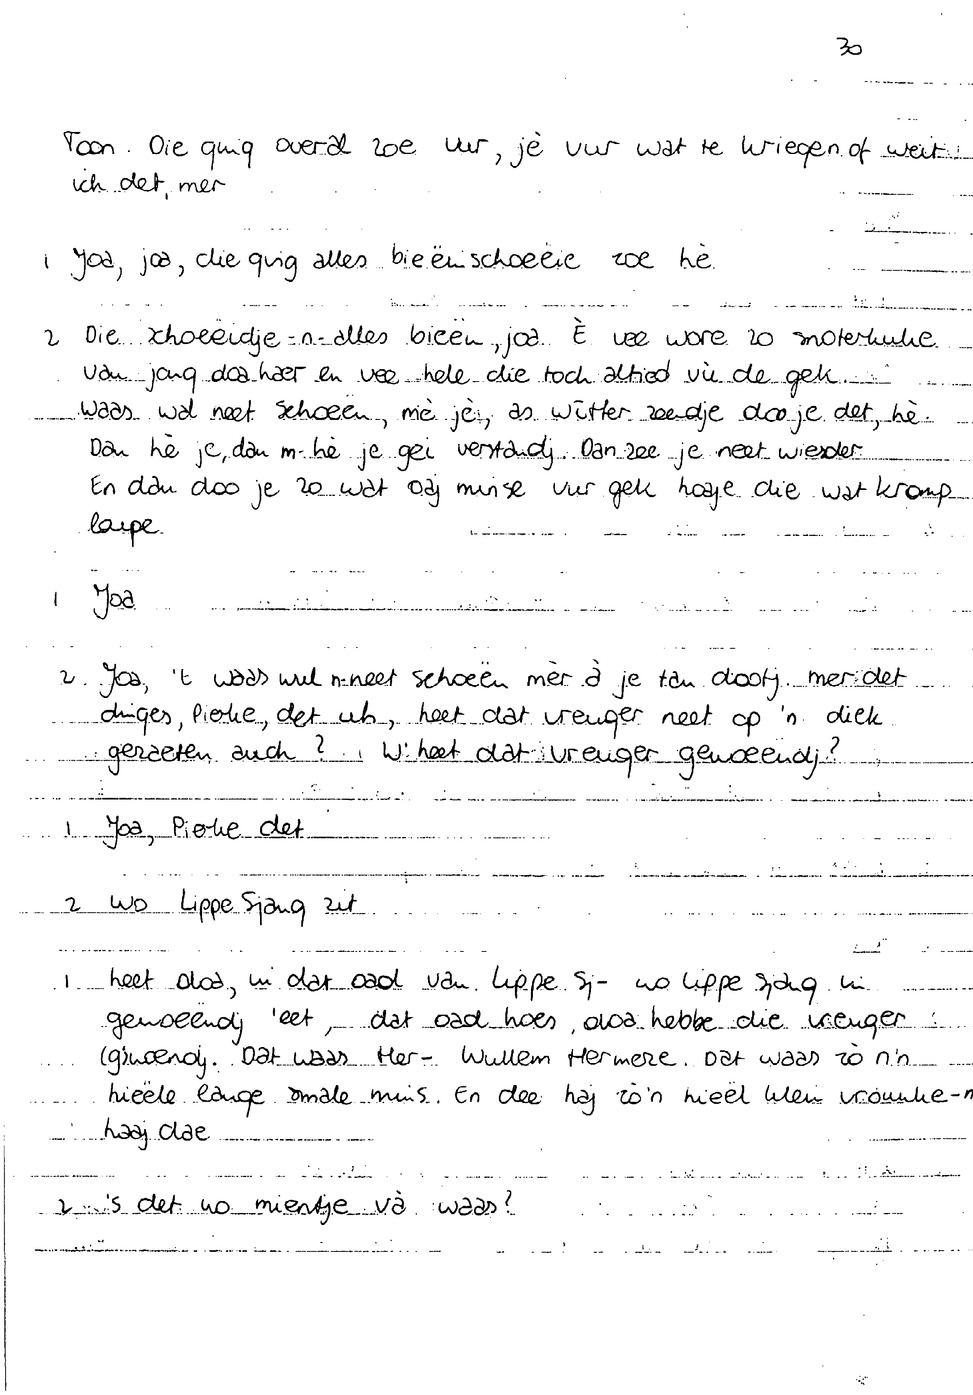 30
Toon. Die ging overal zoe vur, jè vur wat te kriegen of weit
ich det, mer
1 Joa, joa, die ging alles bieëinschoeëie zoe hè.
2 Die schoeëidje-n-alles bieën, joa. È vee wore zo snoterkuke
van jong doahaer en vee hele die toch altied vù de gek.
Waas wal neet schoeën, mè jè, as wùtter zeendje doo je det, hè.
Dan hè je, dan m-hè je gei verstandj. Dan zee je neet wieser
En dan doo je zo wat oaj minse vur gek hoaje die wat kromp
laupe.
1 Joa
2. Joa, 't waas wul n-neet schoeën mèr à je tan dootj. mer det
dinges, Pierke, det uh, heet dat vreuger neet op 'n diek
gezaeten auch? W' heet dat vreuger gewoeëndj?
1 Joa, Pierke det
2 wo Lippe Sjang zit
1 heet doa, in dat oad van Lippe Sj- wo Lippe Sjang in
gewoeëndj 'eet, dat oad hoes, doa hebbe die vreuger
(gewoendj. Dat waas Her- Wullem Hermese. Dat waas zò n'n
hieële lange smale mins. En dee haj zò'n hieël klein vrouwke-n
haaj dae
2 's det wo mientje và waas?